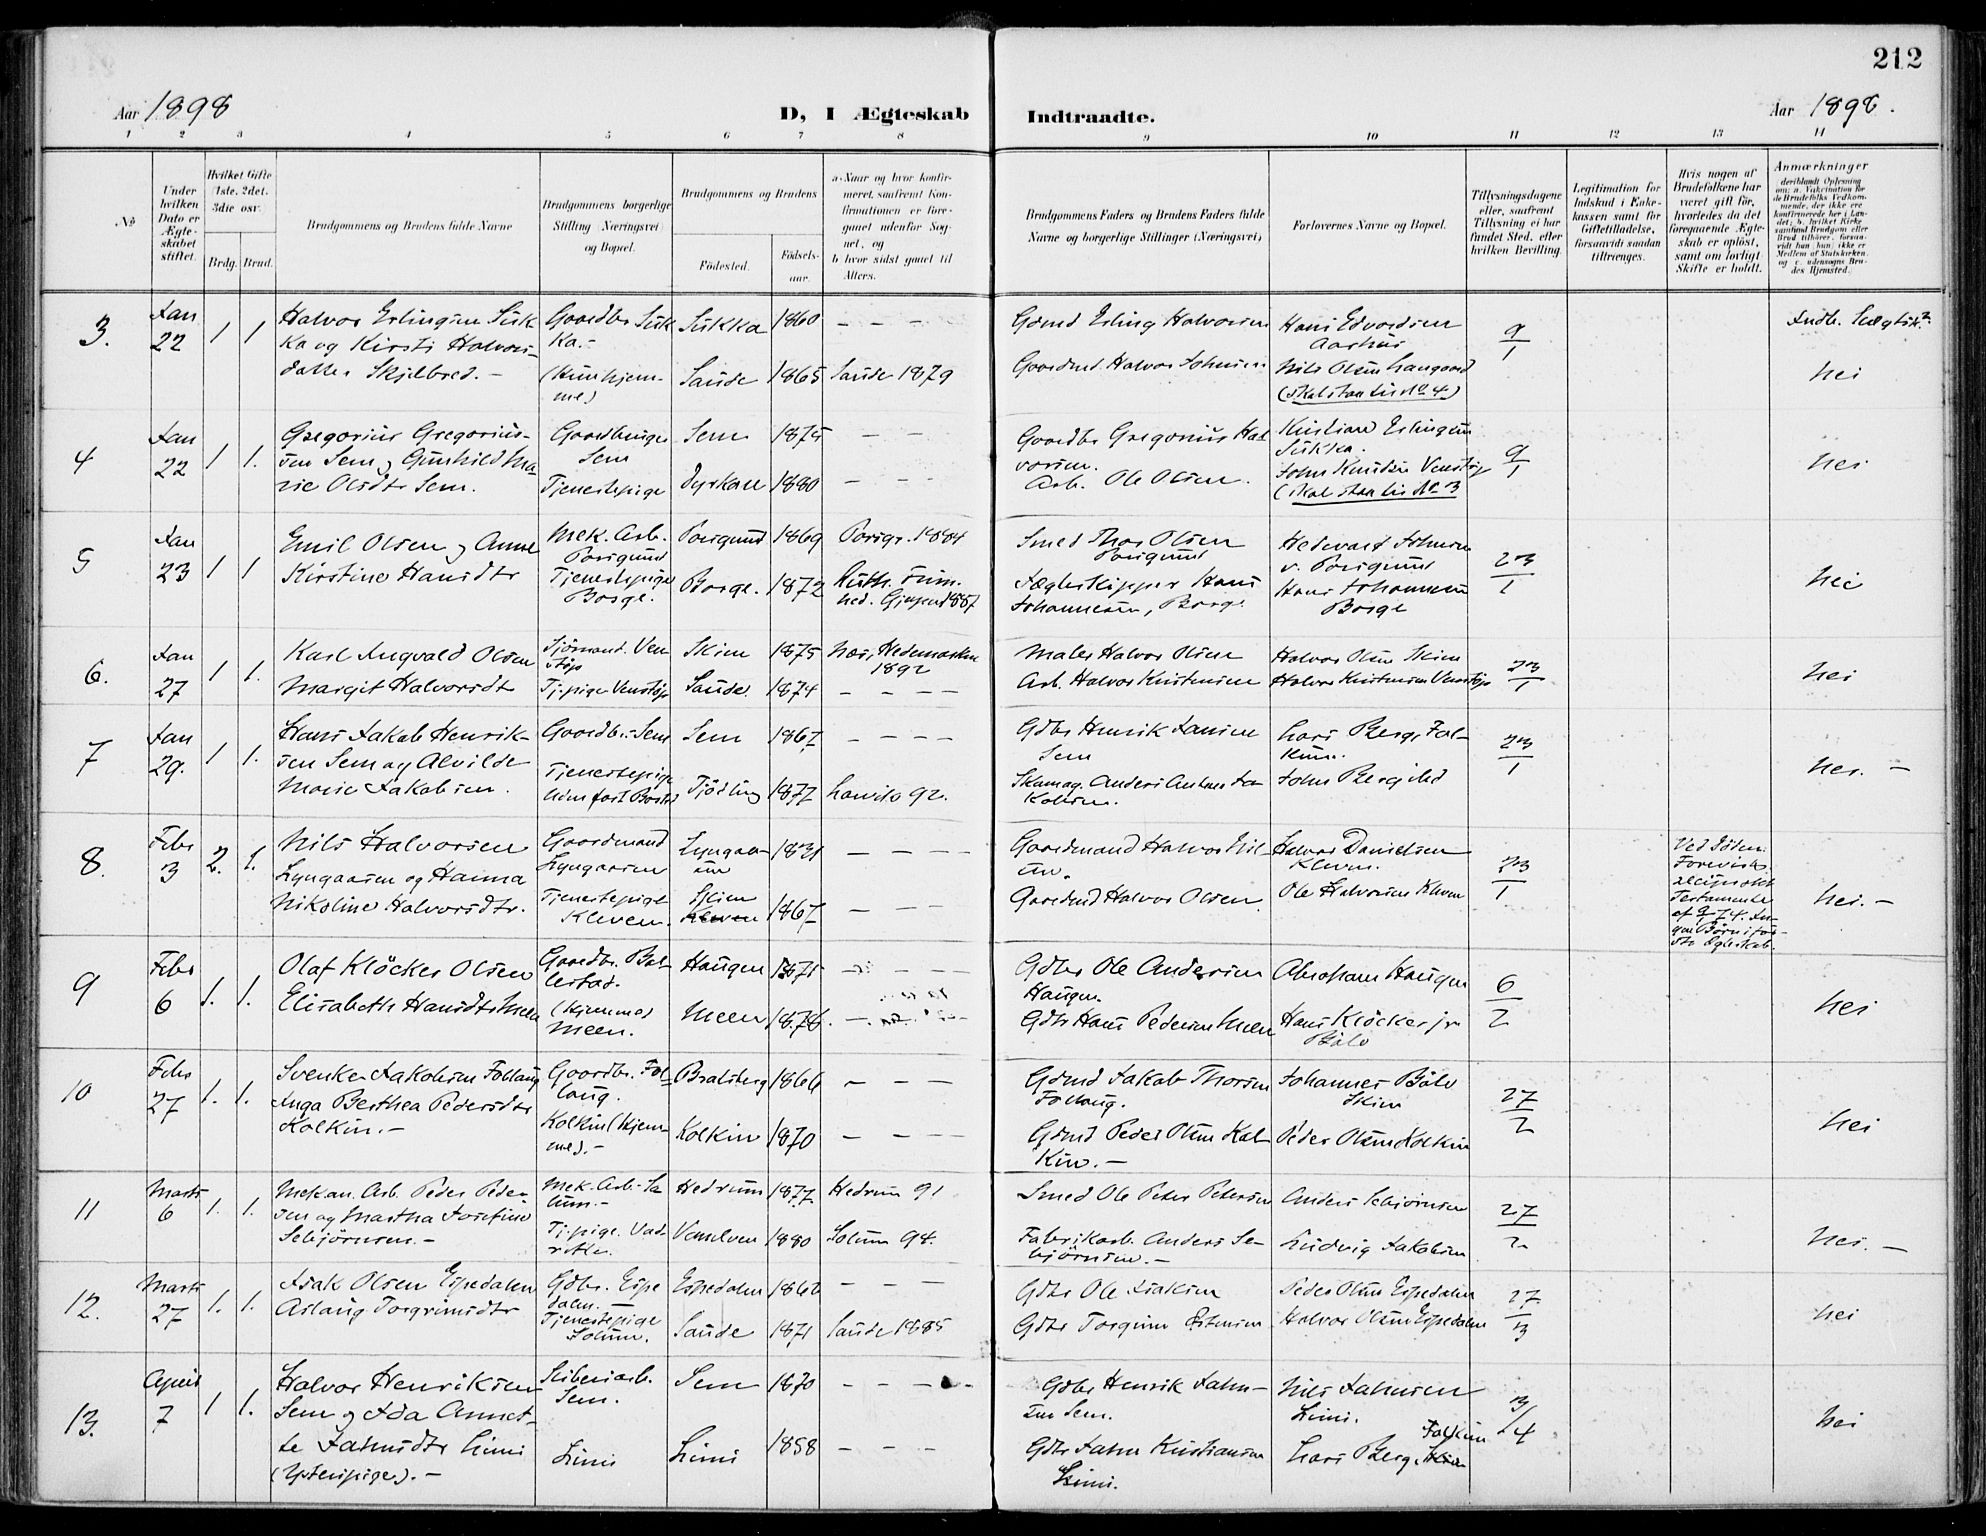 212
Aar 1898
D, I Ægteskab
Indtraadte.
Aar 1898.
1 2 3 4 5 6 7 8 9 10 11 12 13 14
No
Under hvilken Dato er Ægteskabet stiftet.
Hvilket Gifte (1ste, 2det, 3die osv.
Brdg. Brud.
Brudgommens og Brudens fulde Navne
Brudgommens borgerlige Stilling (Næringsvei) og Bopæl.
Brudgommens og Brudens
Fødested.
Fødselsaar.
a. Naar og hvor konfirmeret, saafremt Konfirmationen er foregaaet udenfor Sognet, og
b. hvor sidst gaaet til Alters.
Brudgommens Faders og Brudens Faders fulde Navne og borgerlige Stillinger (Næringsvei)
Forlovernes Navne og Bopæl.
Tillysningsdagene eller, saafremt Tillysning ei har fundet Sted, efter hvilken Bevilling.
Legitimation for Indskud i Enkekassen samt for Giftetilladelse, forsaavidt saadan tiltrænges.
Hvis nogen af Brudefolkene har været gift før, hvorledes da det foregaaende Ægteskab er opløst, samt om lovligt Skifte er holdt.
Anmærkninger
3.
Jan 22
1 1
Halvor Erlingsen Sük
ka og Kirsti Halvors-
datter Skilbred. -
Gaardbr Sük
ka. -
(Hun hjem-
me)
Sükka 1860 - - -
Saude 1865 Saude 1879
Gdmd Erling Halvorsen
Gaardmd. Halvor Johnsen
Hans Edvardsen
Aarhus
Nils Olsen Langaard
(skal staa ved No 4)
9/1
nei
4
Jan 22
1 1.
Gregorius Gregorius-
sen Sem og Gunhild Ma-
rie Olsdtr Sem.
Gaardbruger
Sem
Tjenestepige
Sem 1875 - -
Dyrkoll 1880 - - -
Gaardbr Gregorius Hal
vorsen.
Arb. Ole Olsen.
Kristian Erlingsen
Sükka.
John Knudsen Venstøp
(skal staa ved No 3
9/1
nei
5
Jan 23
1 1
Emil Olsen og Anne
Kirstine Hansdtr
Mek. Arb.
Porsgrund
Tjenestepige
Borge.
Porsgrund 1869 Porsgr. 1884
Borge. 1872 Luth. Frim.
hed. Gjerpen 1887
Smed Thor Olsen
Porsgrund
Jægtskipper Hans
Johannesen, Borge
Hedevard Johnsen
v. Porsgrund
Hans Johannesen
Borge
23/1
nei
6.
Jan 27
1 1.
Karl Ingvald Olsen
Margit Halvorsdtr
Sjömand. Ven
støp
Tj.pige Venstøp
Skien 1875 Næs, Hedemarken
1892
Saude 1874 - - - -
Maler Halvor Olsen
Arb. Halvor Kristensen
Halvor Olsen Skien
Halvor Kristensen Venstøp
23/1
nei
7
Jan 29.
1 1.
Hans Jakob Henrik-
sen Sem og Alvilde
Marie Jakobsen.
Gaardbr. Sem
Tjenestepige
Sem 1867 - - - -
Tjödling 1877 Larvik 92.
Gdbr Henrik Jansen
Sem
Skomag. Anders Anton Ja
kobsen.
Lars Berg, Fal-
kum.
John Bergsted
23/1
nei. -
8.
Febr 3
2. 1.
Nils Halvorsen
Lyngaasen og Hanna
Nikoline Halvorsdtr.
Gaardmand
Lyngaasen
Tjenestepige
Kleven.
Lyngaa-
sen 1831 - - -
Skien
Kleven 1867 - -
Gaardmand Halvor Nil-
sen.
Gaardmd Halvor Olsen
Halvor Danielsen
Kleven.
Ole Halvorsen Kleven
23/1
nei. -
9
Febr 6
1. 1.
Olaf Klöcker Olsen
Elisabeth Hansdtr Meen
Gaardbr. Bal-
lestad.
(Hjemme)
Meen.
Haugen 1871 - - - -
Meen 1878. -
Gdbr Ole Andersen
Haugen.
Gdbr Hans Pedersen Meen
Abraham Haugen
Hans Klöcker jr
Bølv
6/2
nei
10
Febr 27
1. 1.
Svenke Jakobsen Follaug
Inga Berthea Pedersdtr
Kolkin. -
Gaardbr. Fol-
laug.
Kolkin (hjem-
me). -
Bratsberg 1866 - - - -
Kolkin 1870 - - - -
Gdmd Jakob Thorsen
Follaug.
Gdmd Peder Olsen Kol-
kin. -
Johannes Bølv
Skien
Peder Olsen Kolkin
27/2
nei
11
Marts 6
1. 1.
Mekan. Arb. Peder Peder-
sen og Martha Josefine
Sebjörnsen. -
Hedrum 1877. Hedrum 91
1880 Solum 94.
Smed Ole Peter Petersen
Fabrikarb. Anders Se-
björnsen. -
Anders Sebjörnsen
Ludvig Jakobsen
27/2
nei. -
12.
Marts 27
1. 1.
Isak Olsen Espedalen
Aslaug Torgrimsdtr
Gdbr. Espe
dalen. -
Tjenestepige
Solum.
Espedalen 1862 - - -
Saude 1871 Saude 1885
Gdbr Ole Isaksen
Gdbr Torgrim Østensen
Peder Olsen Espedalen
Halvor Olsen Espedalen
27/3
nei
13.
April 7
1 1.
Halvor Henriksen
Sem og Ida Annet-
te Jahnsdtr Limi
Sliberiarb.
Sem.
Limi
Sem 1870 - - - -
Limi 1858 - - -
Gdbr Henrik Jahn-
sen Sem.
Gdbr Jahn Kristiansen
Limi.
Nils Jahnsen
Limi.
Falkum
Lars Berg, Skien
3/4
nei